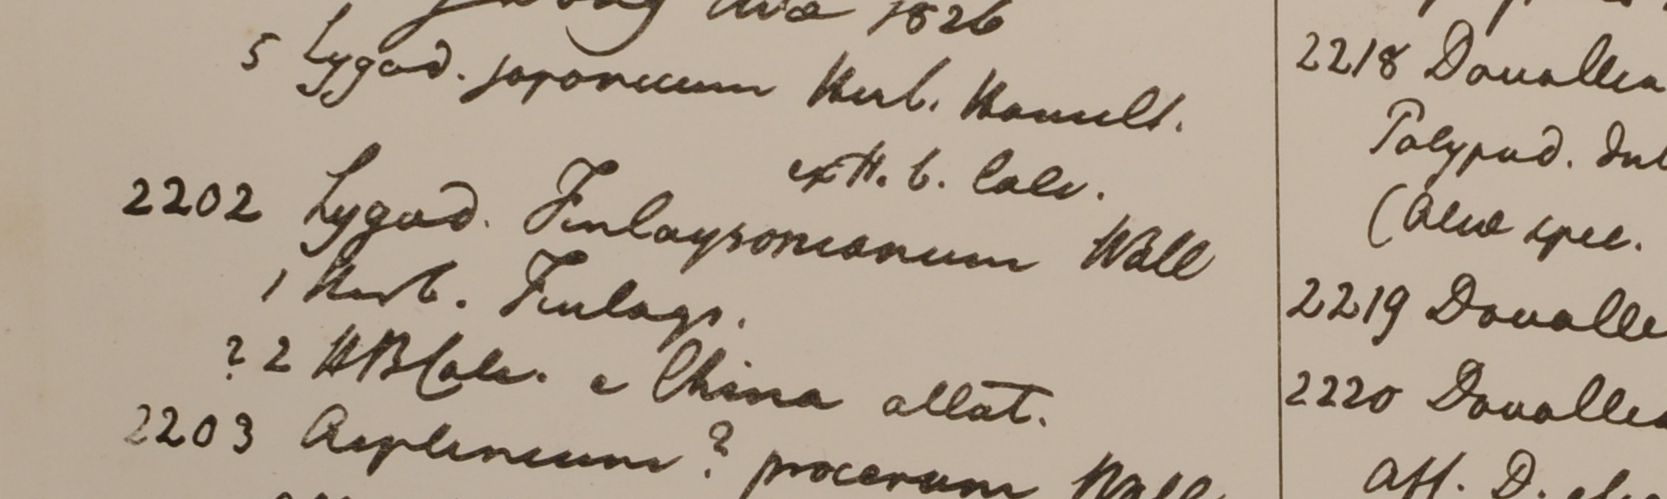 Ava 1826
5 Lygod. japonicum Herb. Hamilt.
ex H. b. Calc.
2202 Lygod. Finlaysonianum Wall
1 Herb. Finlays.
? 2 HBCalc. e China allat.
2203 Asplenium? procerum Wall
2218 Davallia
Polypod.
(Alia spec.
2219 Davallia
2220 Davallia
aff. D.